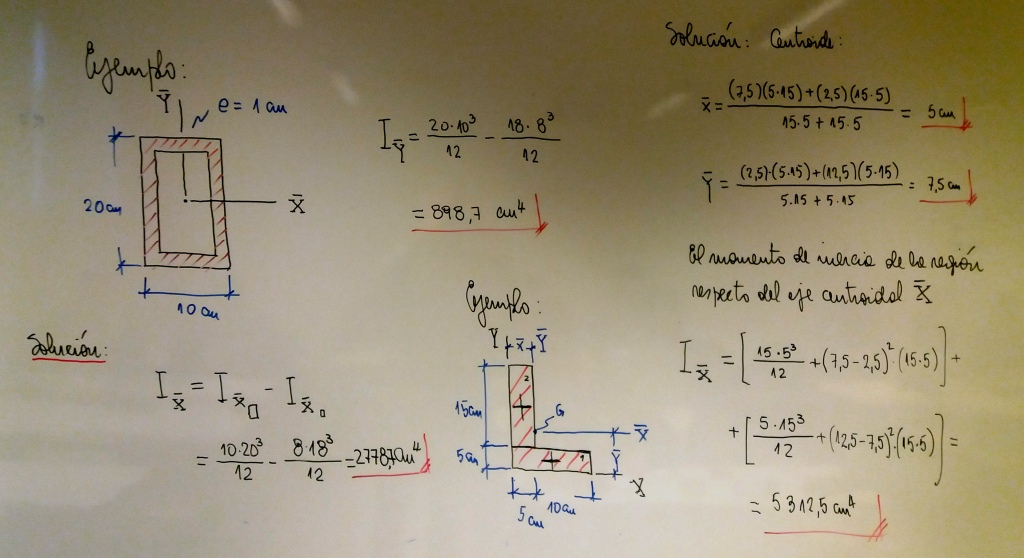 Ejemplo:
Ȳ
e = 1 cm
20cm
X̄
10 cm
I_Ȳ = 20·10³/12 − 18·8³/12
= 898,7 cm⁴
Solución:
I_X̄ = I_X̄□ − I_X̄▫
= 10·20³/12 − 8·18³/12 = 2778,7cm⁴
Ejemplo:
Y x̄ Ȳ
2
15cm
G
X̄
5cm
1
Ȳ
X
5cm 10cm
Solución: Centroide:
x̄ = (7,5)(5·15)+(2,5)(15·5)/15·5 + 15·5 = 5cm
Ȳ = (2,5)·(5·15)+(12,5)(5·15)/5·15 + 5·15 = 7,5cm
El momento de inercia de la región
respecto del eje centroidal X̄
I_X̄ = [15·5³/12 + (7,5−2,5)²·(15·5)] +
+ [5·15³/12 + (12,5−7,5)²·(15·5)] =
= 5312,5 cm⁴